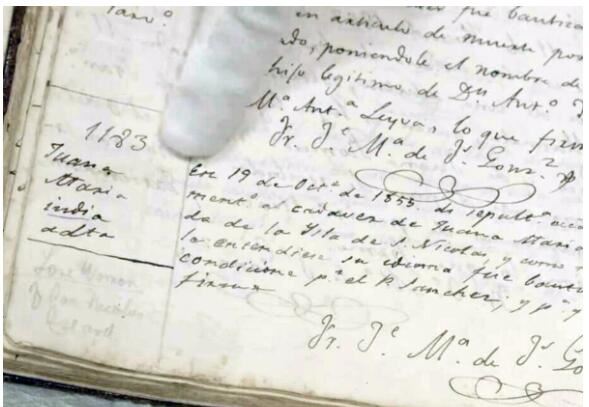 fue bautiza
en articulo de muerte por
do, poniendole el nombre de
hijo legitimo de Dn Antº
Mª Antª Leyva, lo que firm
Fr. Jº Mª de Jˢ Gonzᶻ
1183
Juana
Maria
india
adta
En 19 de Octᵉ de 1853. di sepultª ecca
mentº al cadaver de Juana Maria
da de la Ysla de S. Nicolas, y como
le entendiese su idioma fue baut
condicione pʳ el P. Sanchez; y pª
firmo
Fr. Jᵉ Mª de Jˢ Go
Lone Woman
of San Nicolas
Island